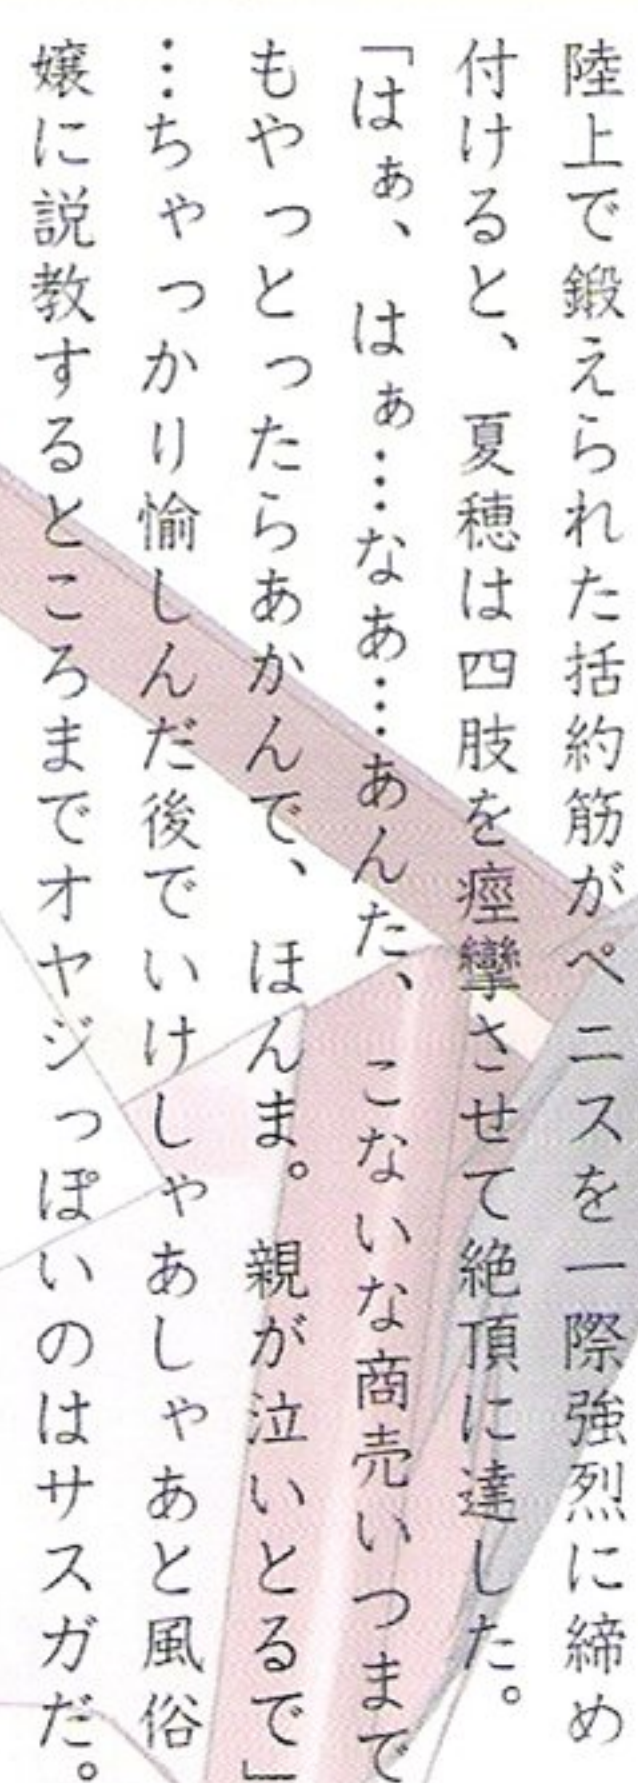 陸上で鍛えられた括約筋がペニスを一際強烈に締め
付けると、夏穂は四肢を痙攣させて絶頂に達した。
「はぁ、はぁ…なあ…あんた、こないな商売いつまで
もやっとったらあかんで、ほんま。親が泣いとるで」
…ちゃっかり愉しんだ後でいけしゃあしゃあと風俗
嬢に説教するところまでオヤジっぽいのはサスガだ。